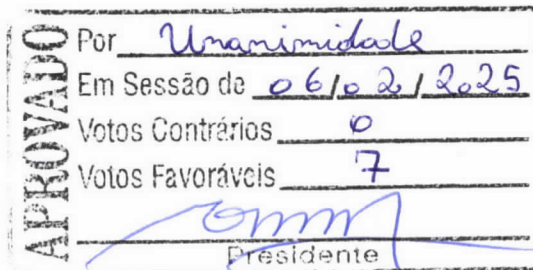 APROVADO
Por Unanimidade
Em Sessão de 06/02/2025
Votos Contrários 0
Votos Favoráveis 7
Presidente